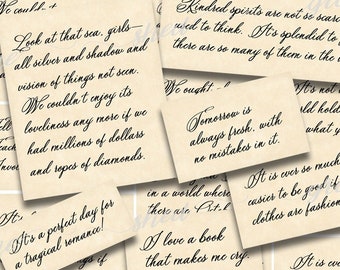 would t
Look at that sea, girls—
all silver and shadow and
vision of things not seen.
We couldn't enjoy its
loveliness any more if we
had millions of dollars
and ropes of diamonds.
Kindred spirits are not so scar
used to think. It's splendid to
there are so many of them in the
We ought
Tomorrow is
always fresh, with
no mistakes in it.
world
hold
what y
It's a perfect day for
a tragical romance!
in a world where
there are
I love a book
that makes me cry.
It is ever so much
easier to be good if
clothes are fashion